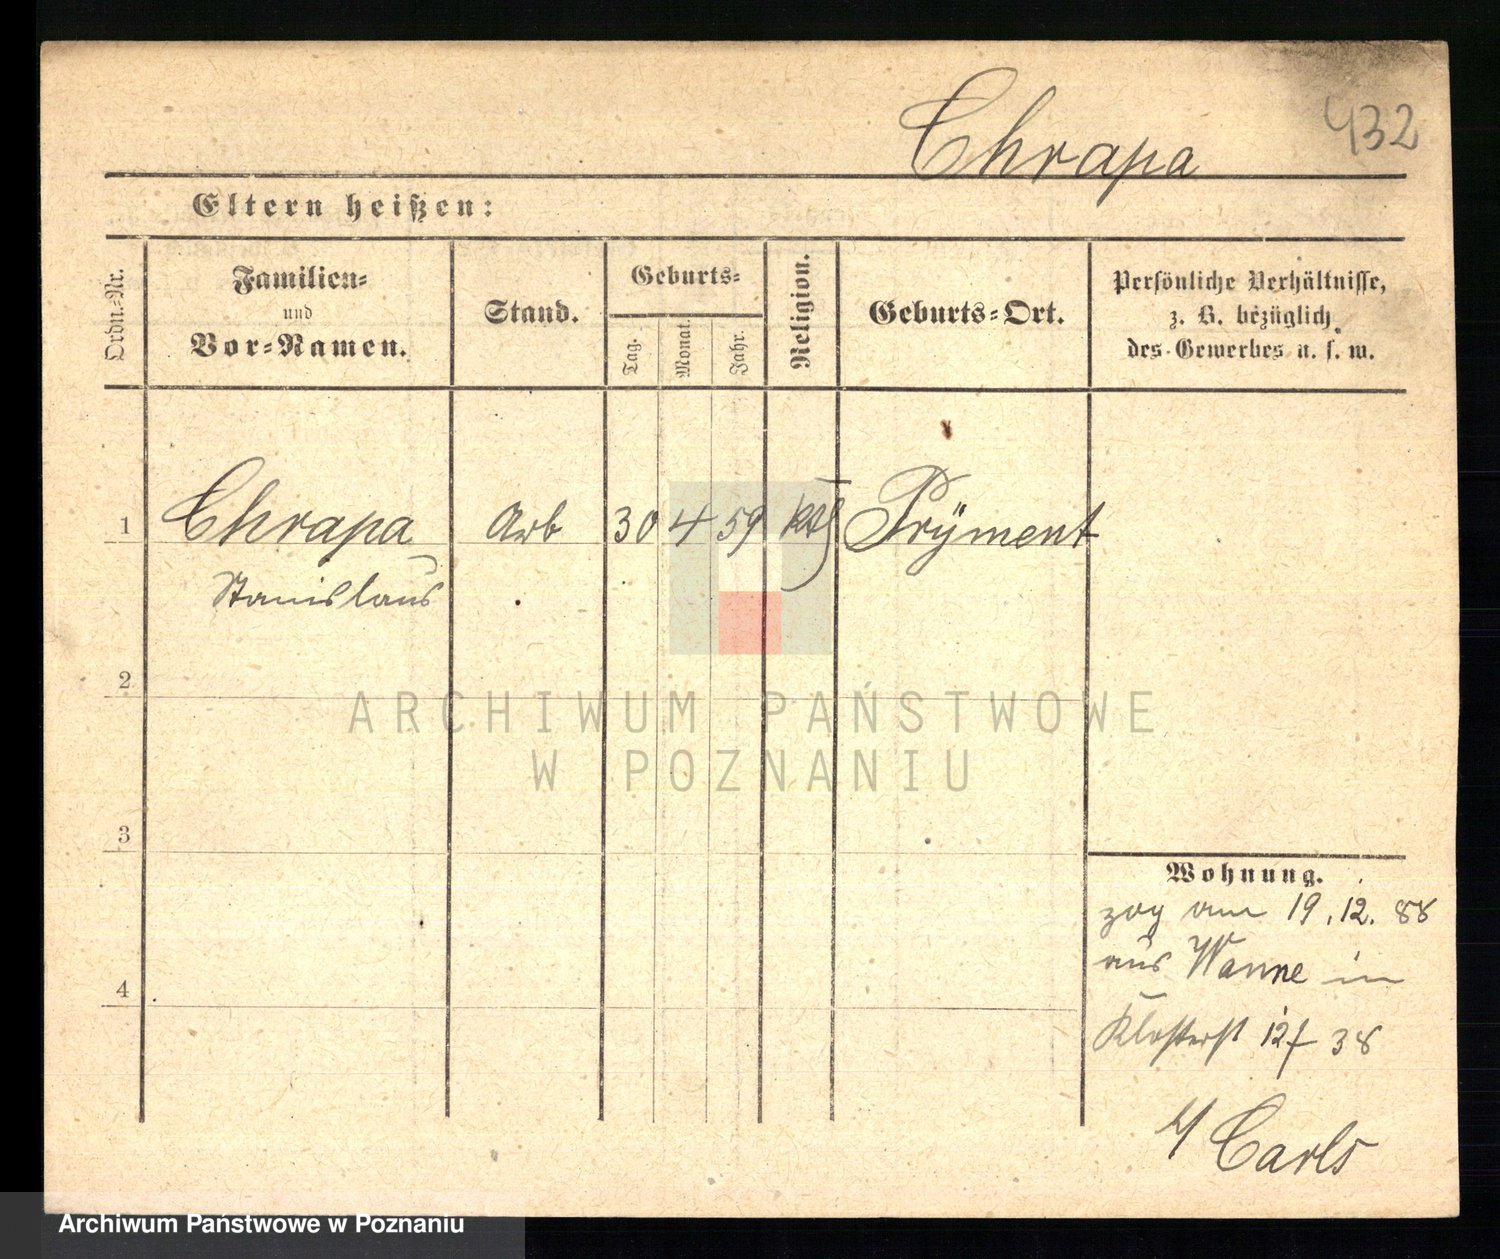 432
Chrapa
Eltern heißen:
Ordn.-Nr.
Familien-
und
Vor-Namen.
Stand.
Geburts-
Tag.
Monat.
Jahr.
Religion.
Geburts-Ort.
Persönliche Verhältnisse,
z. B. bezüglich
des Gewerbes u. s. w.
1 Chrapa Arb 30 4 59 kth Prÿment
Stanislaus
2
3
4
Wohnung.
zog am 19.12.88
aus Wanne in
Klosterst 38
Carls
ARCHIWUM PAŃSTWOWE
W POZNANIU
Archiwum Państwowe w Poznaniu